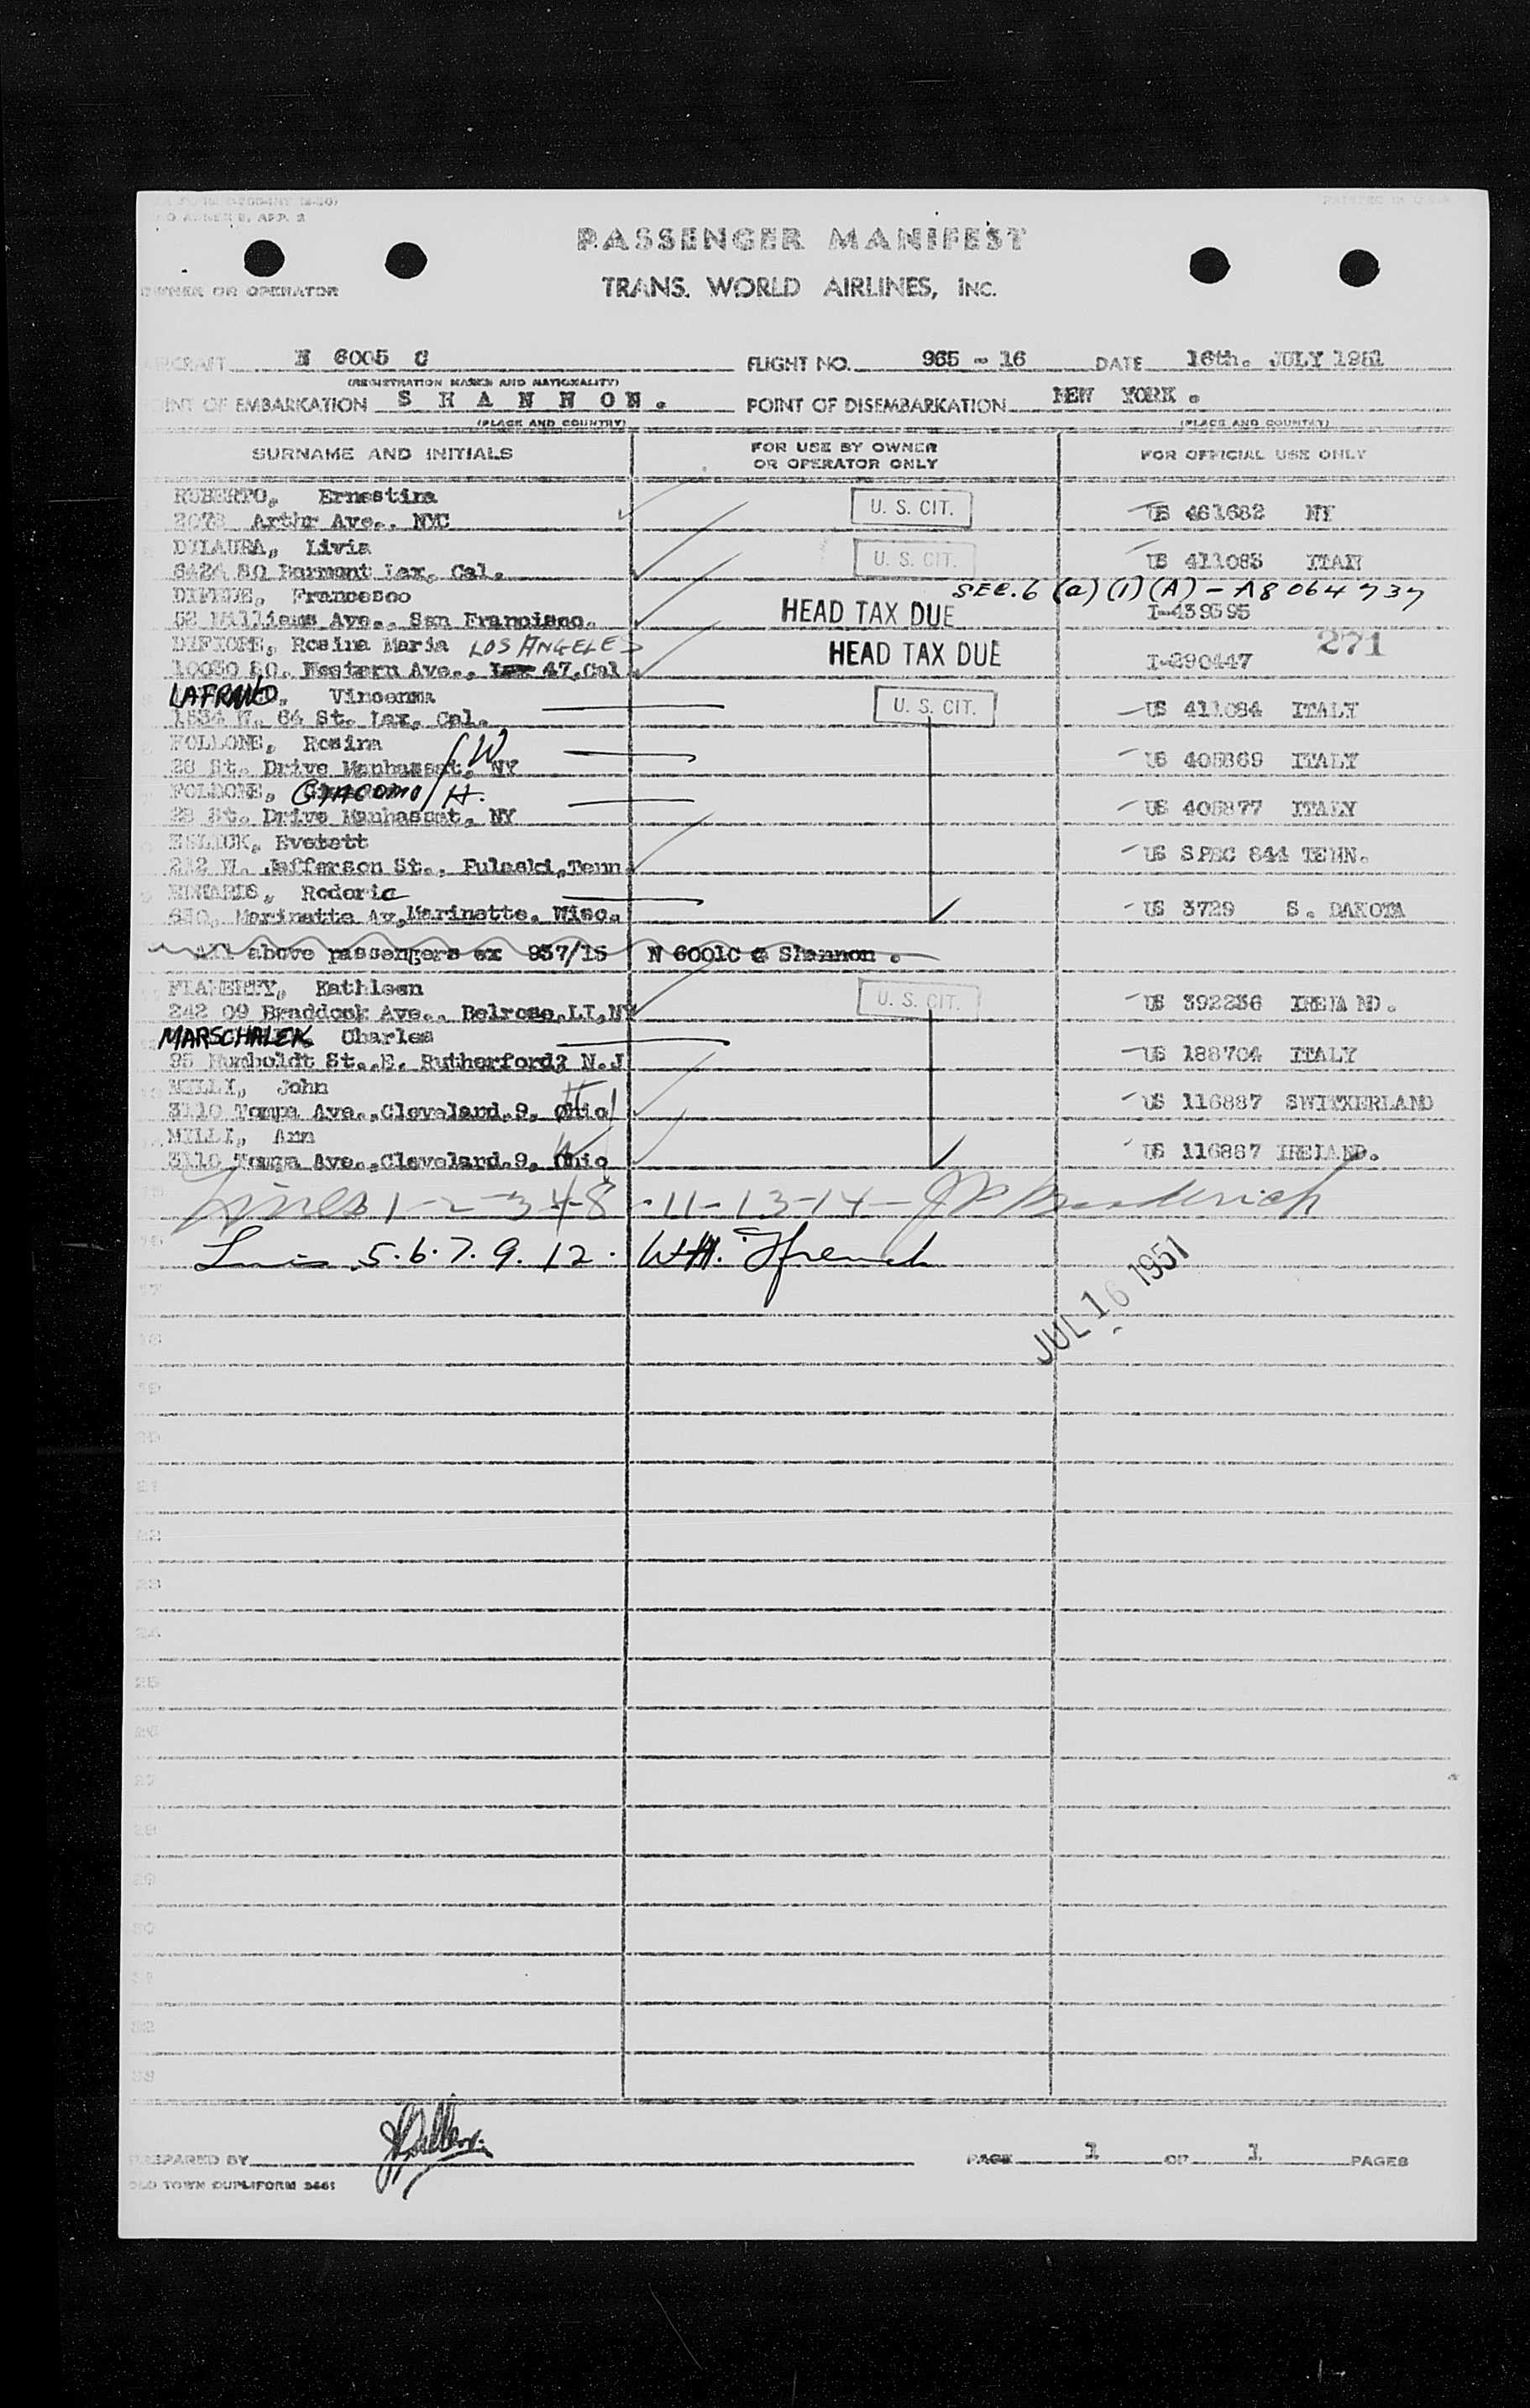 PASSENGER MANIFEST
OWNER OR OPERATOR
TRANS. WORLD AIRLINES, INC.
N 6005 C FLIGHT NO. 965 - 16 DATE 16th. JULY 1951
(REGISTRATION MARKS AND NATIONALITY)
POINT OF EMBARKATION S H A N N O N . POINT OF DISEMBARKATION NEW YORK .
(PLACE AND COUNTRY) (PLACE AND COUNTRY)
SURNAME AND INITIALS FOR USE BY OWNER OR OPERATOR ONLY FOR OFFICIAL USE ONLY
RUBERTO, Ernestina U. S. CIT.
Arthr Ave., NYC US 461682 NY
DILAURA, Livia U. S. CIT.
Lax, Cal. US 411083
Francesco SEC. 6 (a) (1) (A) - A8 064 737
Ave., San Francisco. HEAD TAX DUE I-439595
DIFIORE, Rosina Maria LOS ANGELES HEAD TAX DUE 271
10030 SO. Western Ave., Lax 47, Cal. I-290447
Vincenza U. S. CIT.
1834 W. 64 St. Lax, Cal. US 411084 ITALY
FOLLONE, Rosina /W
28 St. Drive Manhasset, NY US 405869 ITALY
FOLLONE, GIACOMO/H.
28 St. Drive Manhasset, NY US 405877 ITALY
ESLICK, Everett
212 W. Jefferson St., Pulaski, Tenn. US SPEC 844 TENN.
Roderic
Marinette Av, Marinette. Wisc. US 3729 S. DAKOTA
All above passengers ex 937/15 N 6001C @ Shannon .
FLAHERTY, Kathleen U. S. CIT.
242 09 Braddock Ave., Belrose, LI, NY US 392236 IRELAND.
MARSCHALEK Charles
95 Humboldt St., E. Rutherford, N.J US 188704 ITALY
MILLI, John H
3110 Tampa Ave., Cleveland, 9, Ohio US 116887 SWITXERLAND
MILLI, Ann W
3110 Tampa Ave., Cleveland, 9, Ohio US 116887 IRELAND.
Lines 1-2-3-4-8-11-13-14- J Broderich
5. 6. 7. 9. 12. WH. Ffrench
JUL 16 1951
PREPARED BY PAGE 1 OF 1 PAGES
OLD TOWN DUPLIFORM